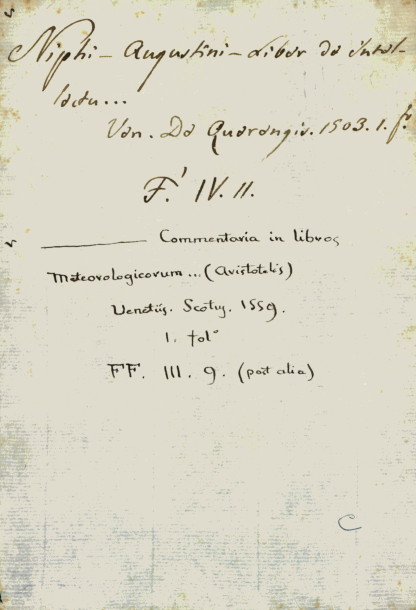 Niphi - Augustini - Liber de intel-
lectu...
Ven. De Quarengis. 1503. 1. fº
F.' IV. 11.
Commentaria in libros
Meteorologicorum... (Aristotelis)
Venetiis. Scotus. 1559.
1. folº
FF. III. 9. (post alia)
C